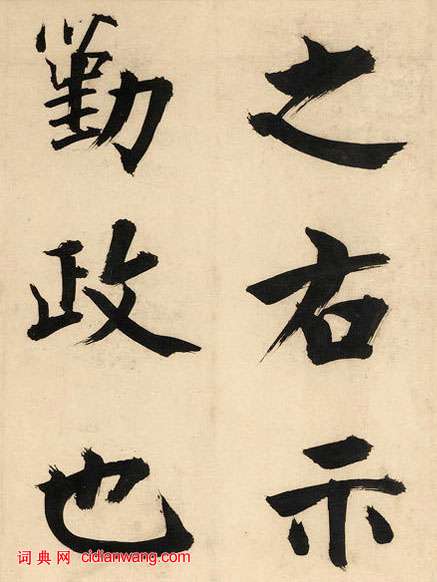 之右示
勤政也
词典网 cidianwang.com